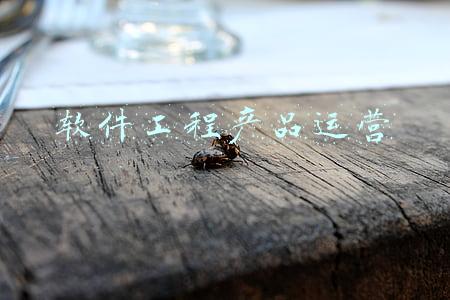 软件工程产品运营